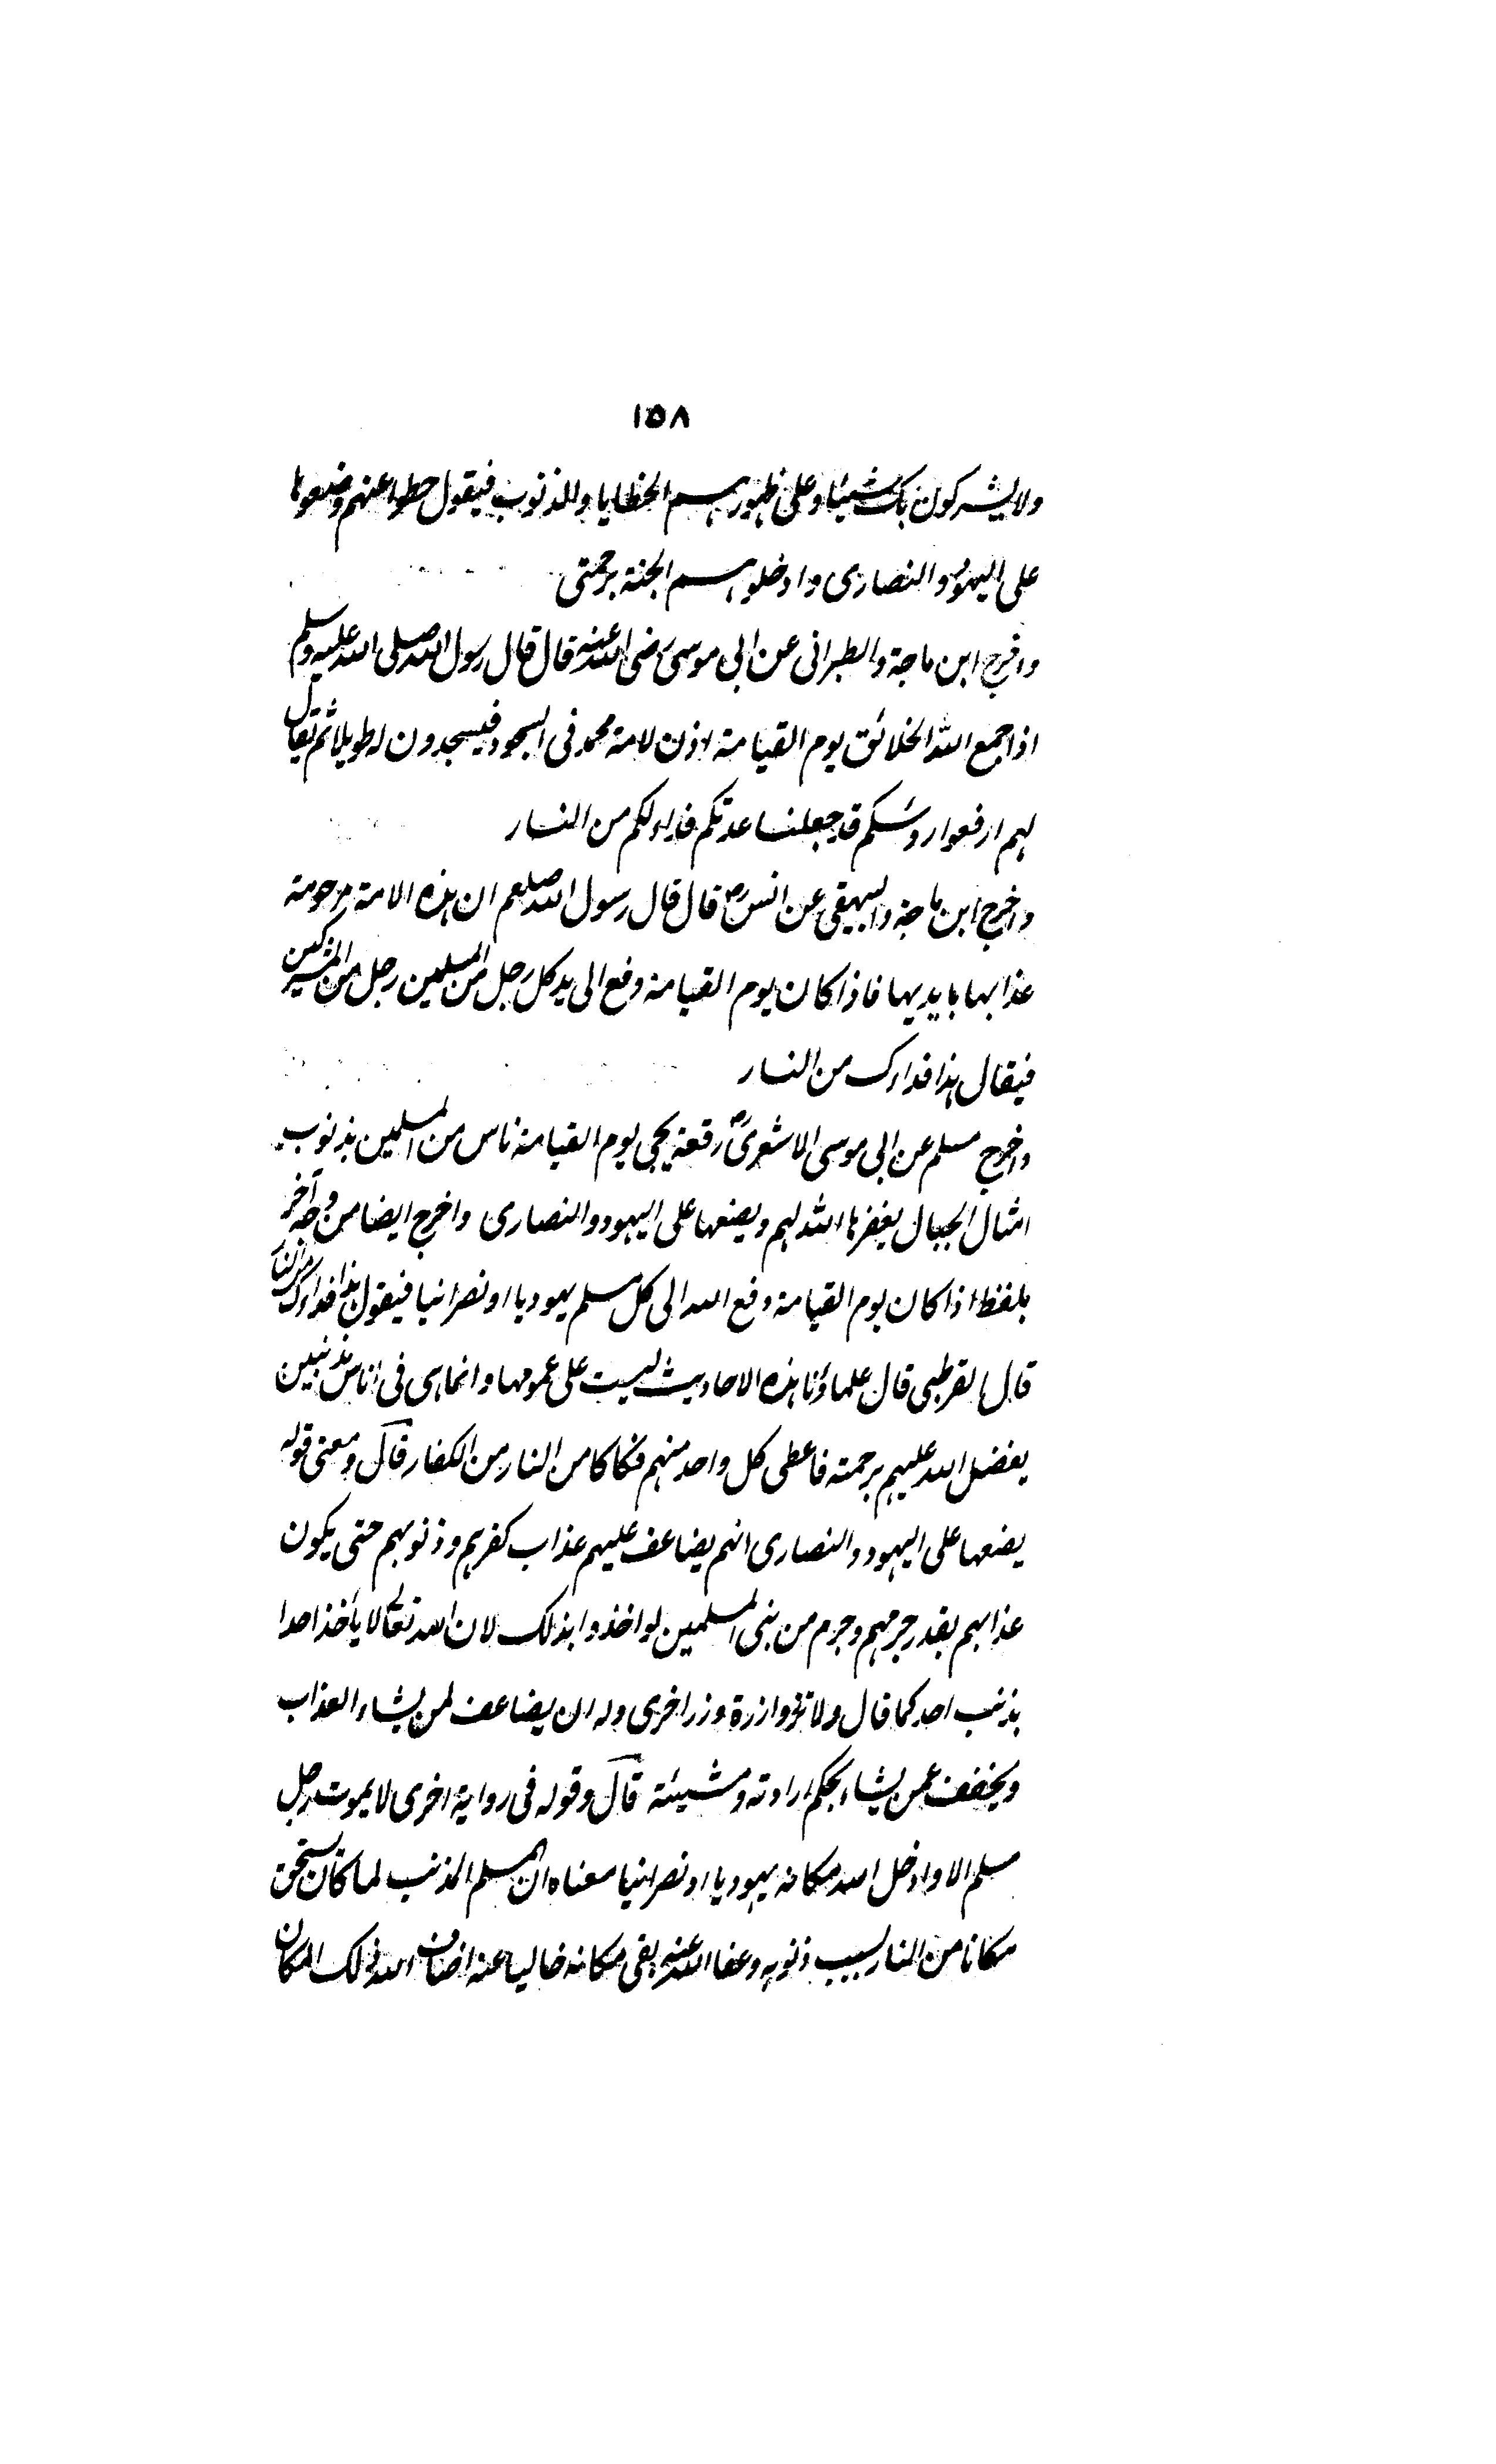 ١٥٨
ولا يشركون بك شيئا وعلى ظهورهم الخطايا والذنوب فيقول حطوا عنهم وضعوها
على اليهود والنصارى وادخلوهم الجنة برحمتى
واخرج ابن ماجة والطبرانى عن ابى موسى رضى الله عنه قال قال رسول الله صلى الله عليه وسلم
اذا جمع الله الخلائق يوم القيامة اذن لامة محمد فى السجود فيسجدون له طويلا ثم يقال
لهم ارفعوا روسكم قد جعلنا عدتكم فداء لكم من النار
واخرج ابن ماجة والبيهقى عن انس رض قال قال رسول الله صلعم ان هذه الامة مرحومة
عذابها بايديها فاذا كان يوم القيامة دفع الى يد كل رجل من المسلمين رجل من المشركين
فيقال هذا فداءك من النار
واخرج مسلم عن ابى موسى الاشعرى رض رفعه يجى يوم القيامة ناس من المسلمين بذنوب
امثال الجبال يغفرها الله لهم ويضعها على اليهود والنصارى واخرج ايضا من وجه آخر
بلفظ اذا كان يوم القيامة دفع الله الى كل مسلم يهوديا او نصرانيا فيقول هذا فداءك من النار
قال القرطبى قال علماؤنا هذه الاحاديث ليست على عمومها وانما هى فى اناس مذنبين
يفضل الله عليهم برحمته فاعطى كل واحد منهم فكاكا من النار من الكفار قال ومعنى قوله
يضعها على اليهود والنصارى انهم يضاعف عليهم عذاب كفرهم وذنوبهم حتى يكون
عذابهم بقدر جرمهم وجرم من بنى المسلمين لو اخذوا بذلك لان الله تعالى لا يأخذ احدا
بذنب احد كما قال ولا تزر وازرة وزر اخرى وله ان يضاعف لمن يشاء العذاب
ويخفف عمن يشاء بحكم ارادته ومشيئة قال وقوله فى رواية اخرى لا يموت رجل
مسلم الا وادخل الله مكانه يهوديا او نصرانيا معناه ان المسلم المذنب لما كان يستحق
مكانا من النار بسبب ذنوبه وعفا الله عنه بقى مكانه خاليا عنه اضاف الله ذلك المكان